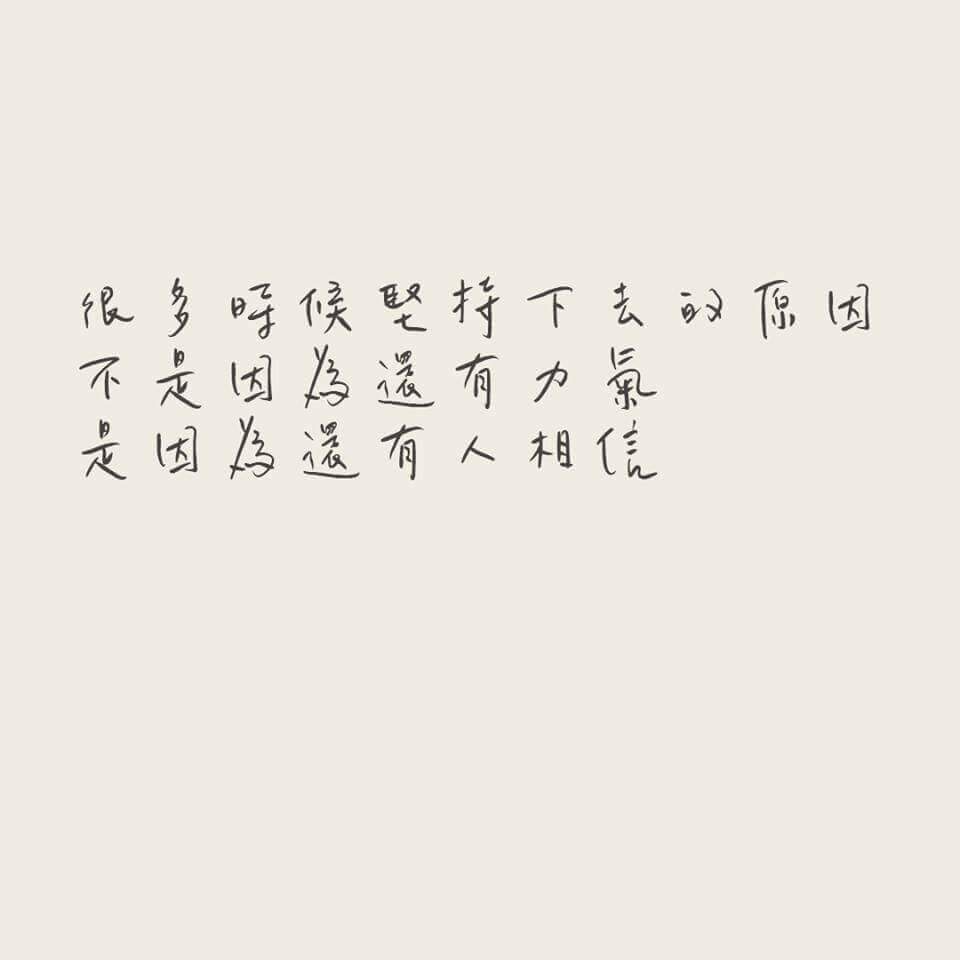 很多時候堅持下去的原因
不是因為還有力氣
是因為還有人相信